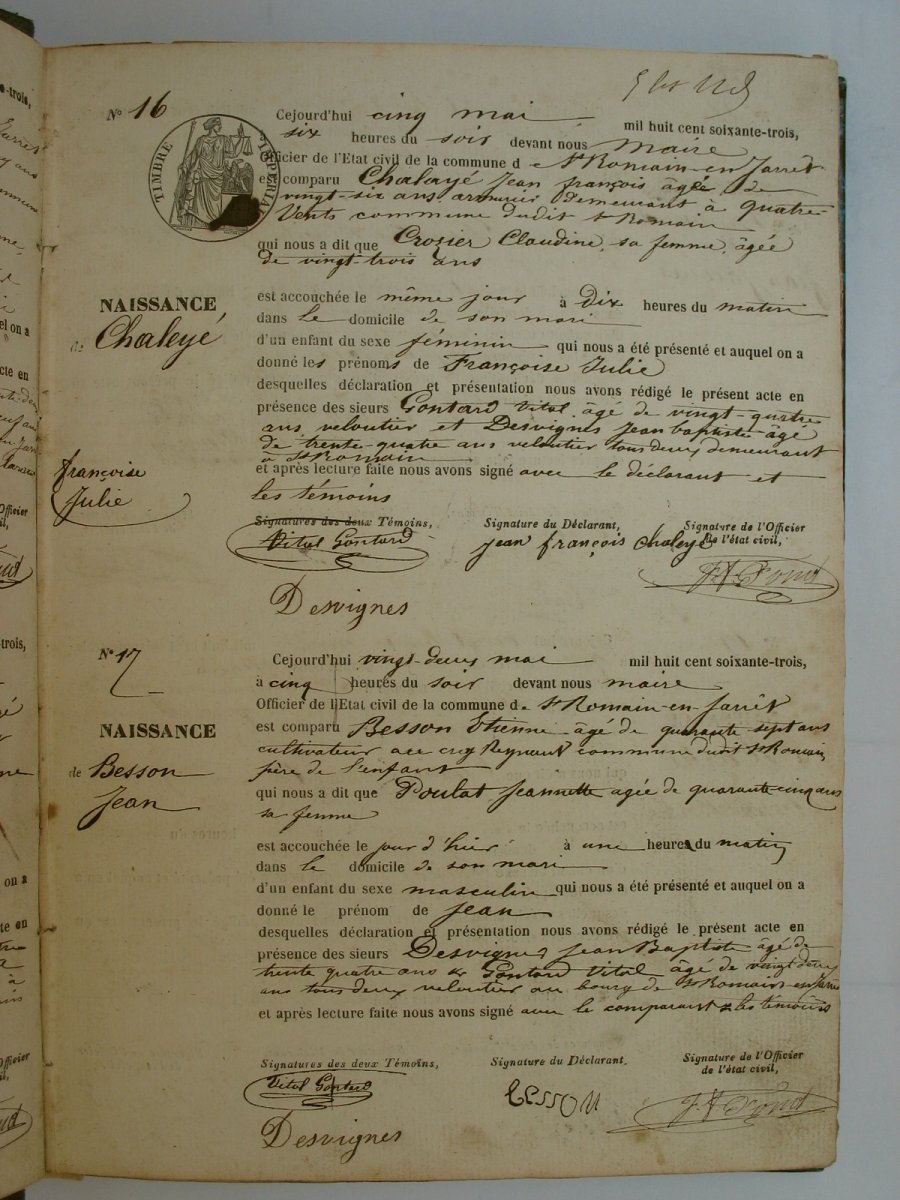 N° 16
TIMBRE IMPERIAL
Cejourd'hui cinq mai mil huit cent soixante-trois,
six heures du soir devant nous maire
Officier de l'Etat civil de la commune d e St Romain-en-Jarret
est comparu Chaleyé Jean françois âgée de
vingt-six ans armurier demeurant à quatre-
Vents commune dudit st Romain
qui nous a dit que Crozier Claudine, sa femme, âgée
de vingt-trois ans
NAISSANCE
de Chaleyé
françoise
Julie
est accouchée le même jour à dix heures du matin
dans le domicile de son mari
d'un enfant du sexe féminin qui nous a été présenté et auquel on a
donné les prénoms de Françoise Julie
desquelles déclaration et présentation nous avons rédigé le présent acte en
présence des sieurs Gontard Vital âgé de vingt-quatre
ans veloutier et Desvignes Jean baptiste âgé
de trente-quatre ans veloutier tous deux demeurant
à St Romain
et après lecture faite nous avons signé avec le déclarant et
les témoins
Signatures des deux Témoins, Signature du Déclarant, Signature de l'Officier
de l'état civil,
Vital Gontard Jean françois Chaleyé
Desvignes
N° 17
Cejourd'hui vingt-deux mai mil huit cent soixante-trois,
à cinq heures du soir devant nous maire
Officier de l'Etat civil de la commune d e St Romain-en-Jarrêt
est comparu Besson Etienne âgé de quarante sept ans
cultivateur commune dudit St Romain
père de l'enfant
qui nous a dit que Poulat Jeannette agée de quarante-cinq ans
sa femme
NAISSANCE
de Besson
Jean
est accouchée le jour d'hier à une heures du matin
dans le domicile de son mari
d'un enfant du sexe masculin qui nous a été présenté et auquel on a
donné le prénom de Jean
desquelles déclaration et présentation nous avons rédigé le présent acte en
présence des sieurs Desvignes Jean Baptiste âgé de
trente quatre ans & Gontard Vital âgé de vingt deux
ans tous deux veloutier au bourg de St Romain-en-Jarret
et après lecture faite nous avons signé avec le comparant & les témoins
Signatures des deux Témoins, Signature du Déclarant. Signature de l'Officier
de l'état civil,
Vital Gontard Besson
Desvignes